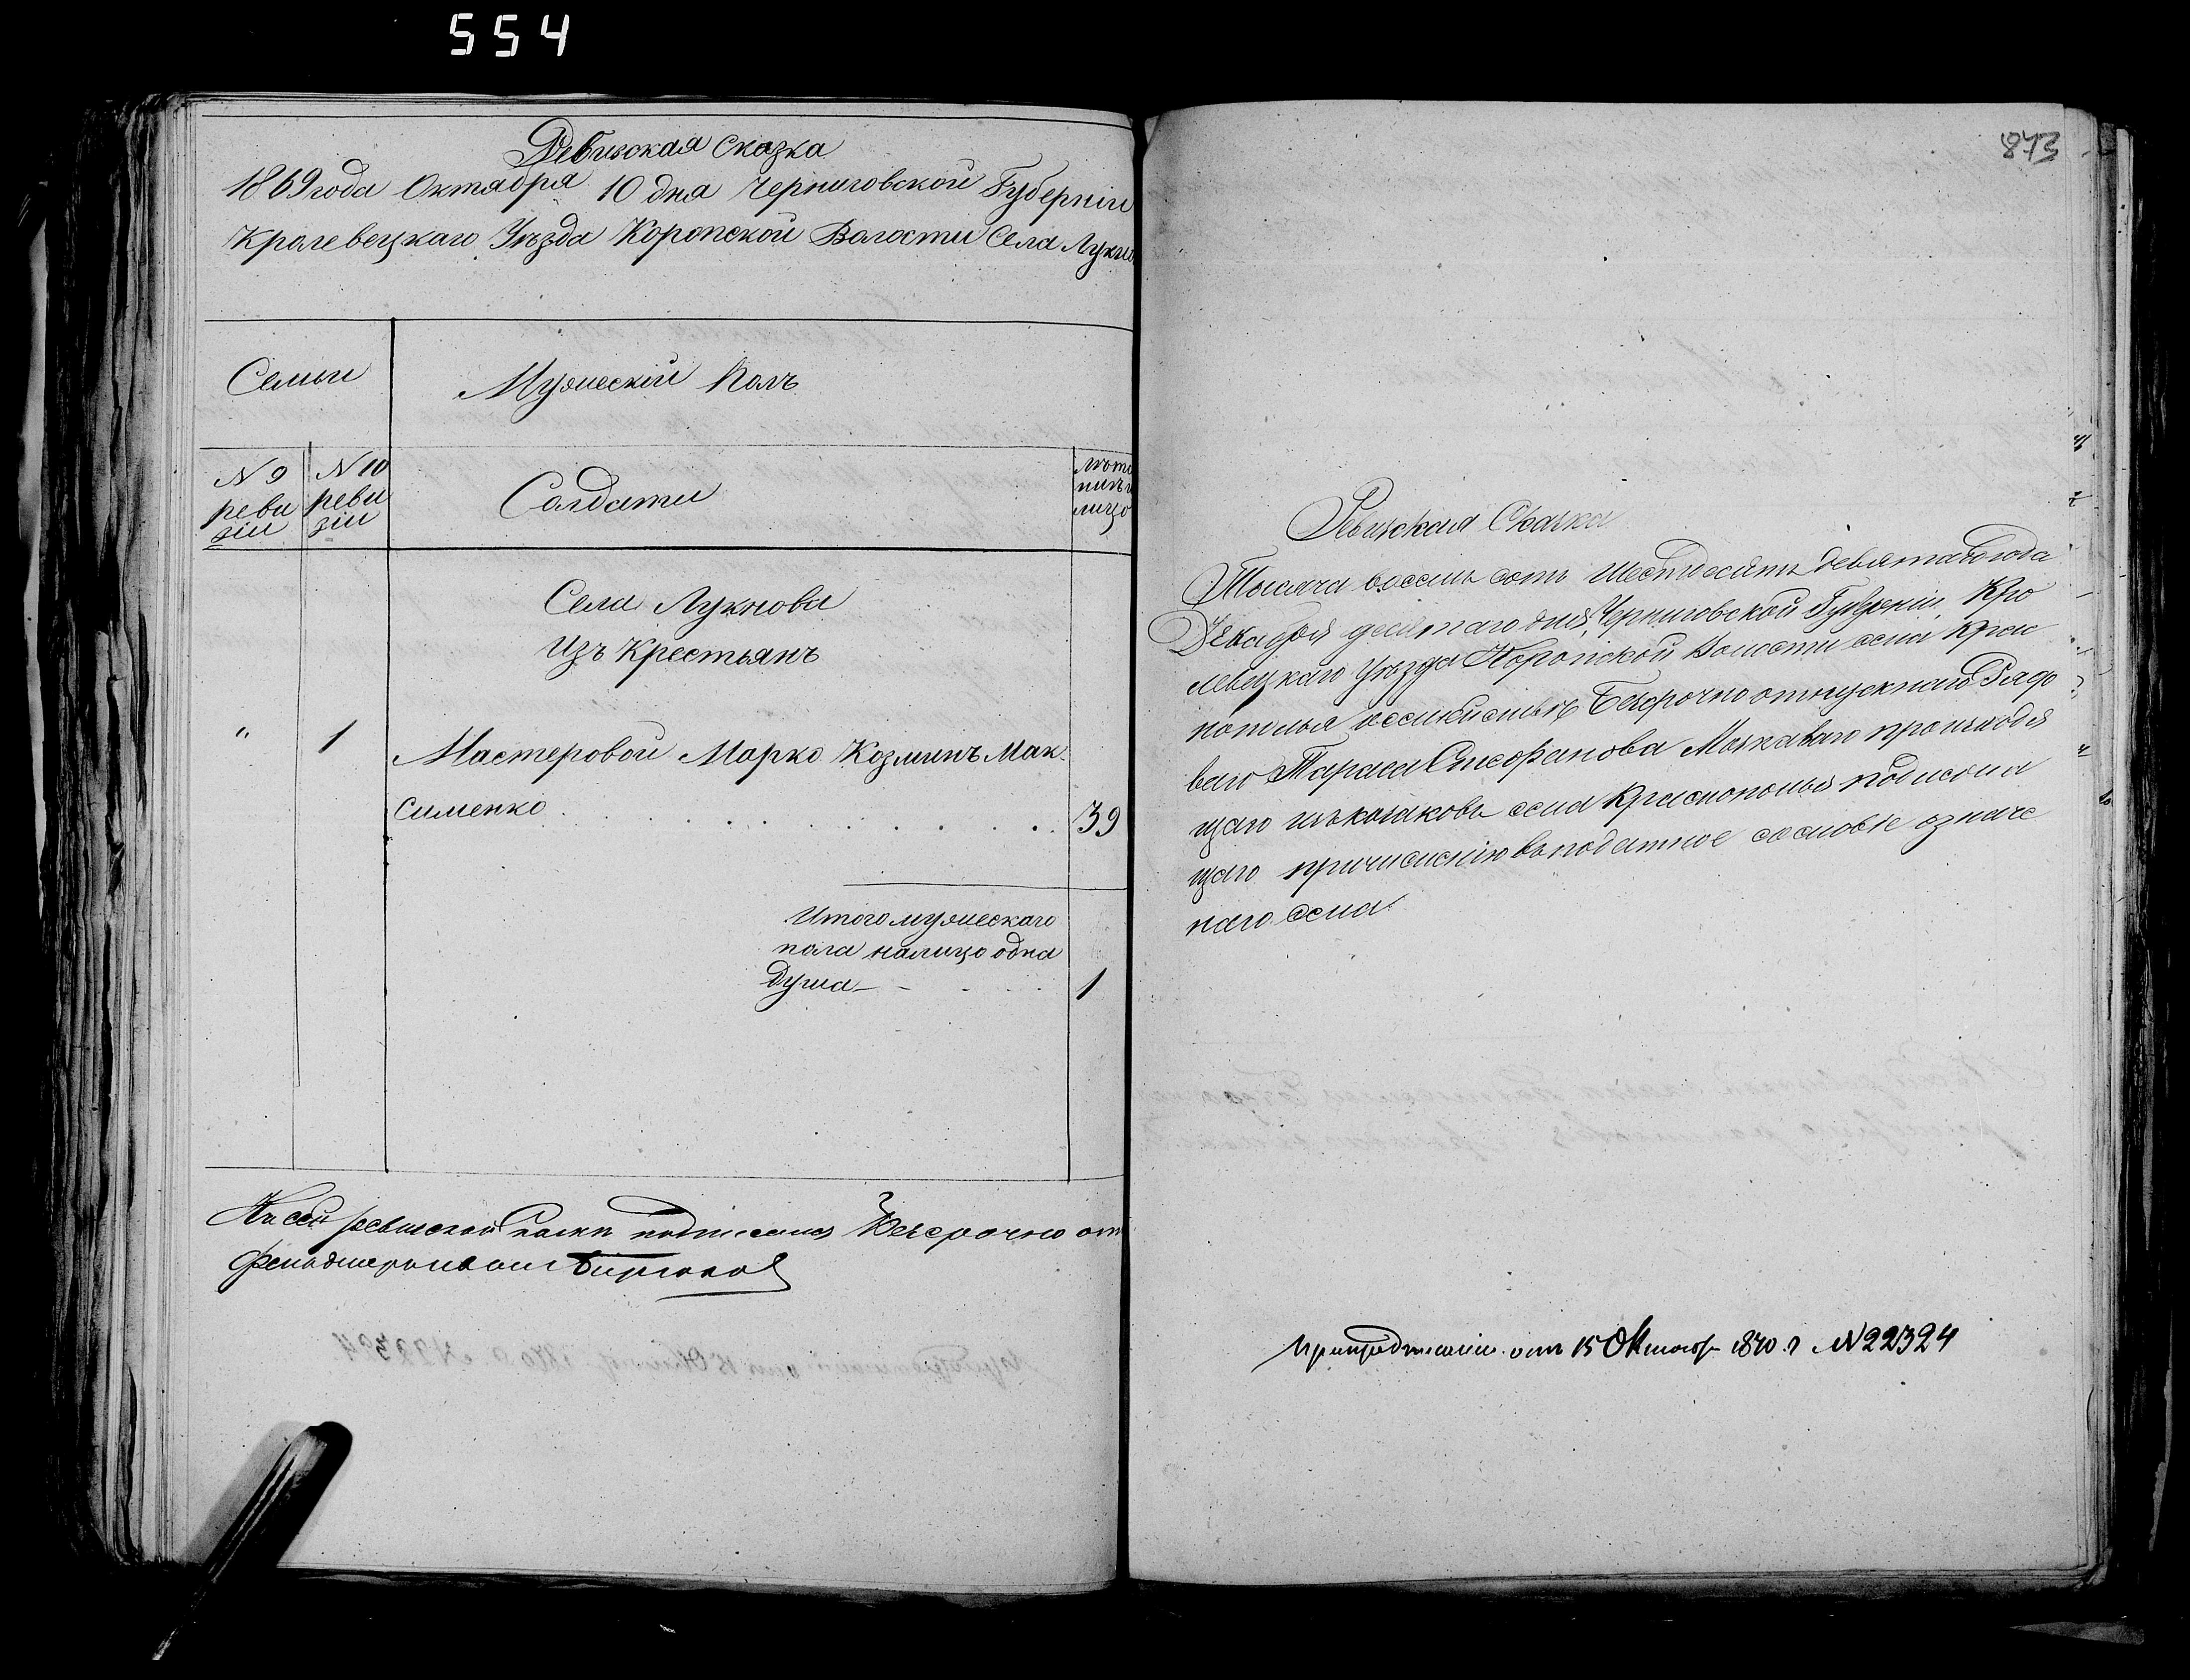 554
Ревизская Сказка
1869 года Октября 10 дня Черниговской Губерніи
Кролевецкаго Уѣзда Коропской Волости Села Лукно
Семьи
Мужескій Полъ
N 9 ревизіи
N 10 ревизіи
Солдаты
лѣто
нынѣ
лицо
Села Лукнова
Изъ Крестьянъ
" 1 Мастеровой Марко Козминъ Мак
сименко 39
Итого мужескаго
пола налицо одна
душа 1
Къ сей ревизской сказки подписался Безсрочно от
873
Ревизская Сказка
Тысяча восемь сотъ шестдесятъ девятаго года
Декабря десятаго дня, Черниговской Губерніи, Кро
левецкаго Уѣзда Коропской Волости села Крас
нополья Безсрочно отпускнаго Рядо
ваго Тараса Стефанова происходя
щаго изъ козаковъ села Краснополья подлежа
щаго причисленію въ податное сословіе означе
наго села
отъ 15 Октября 1870 г N 22324